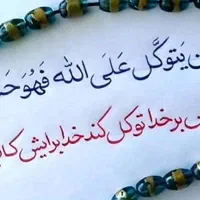 يَتوكَّل عَلَى الله فَهُوَ
بر خدا توکل کند خدا برایش